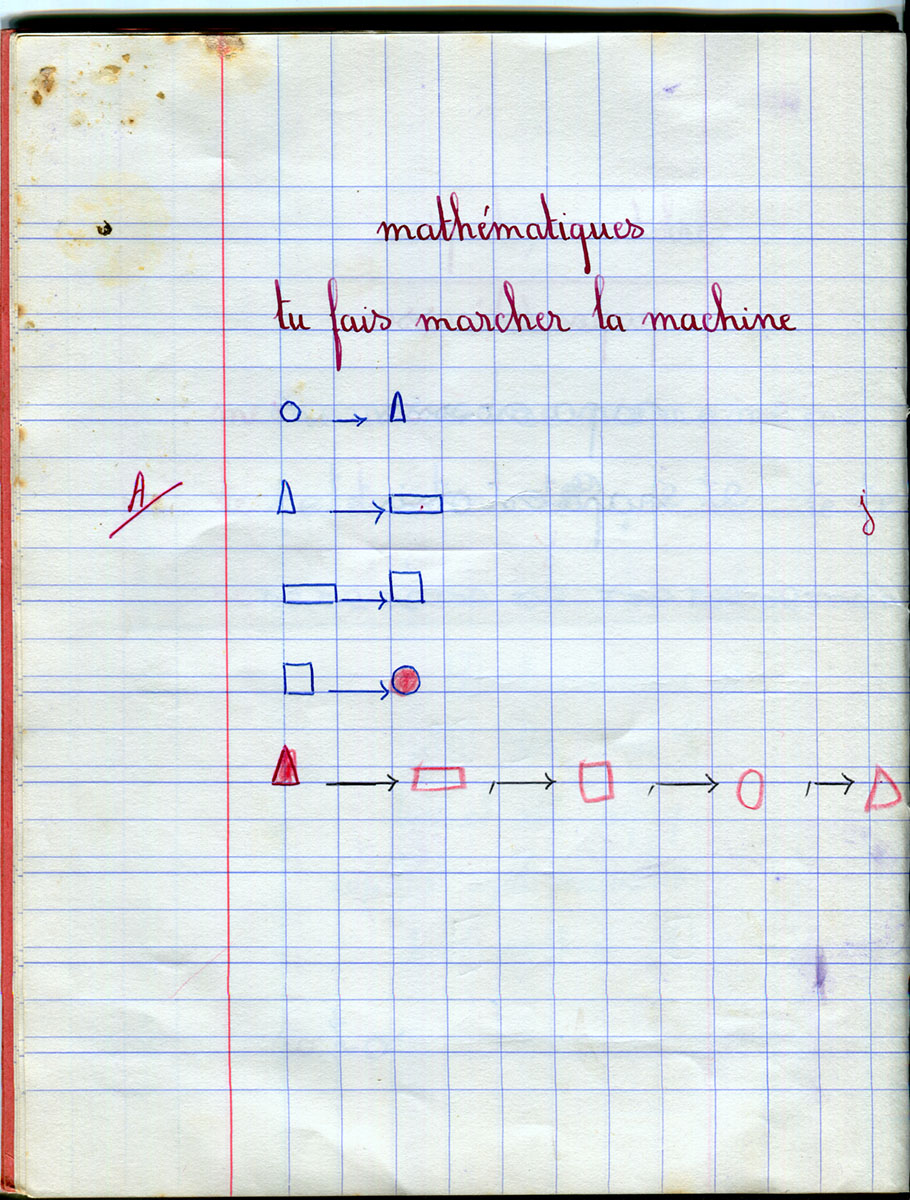 mathématiques
tu fais marcher la machine
A
j